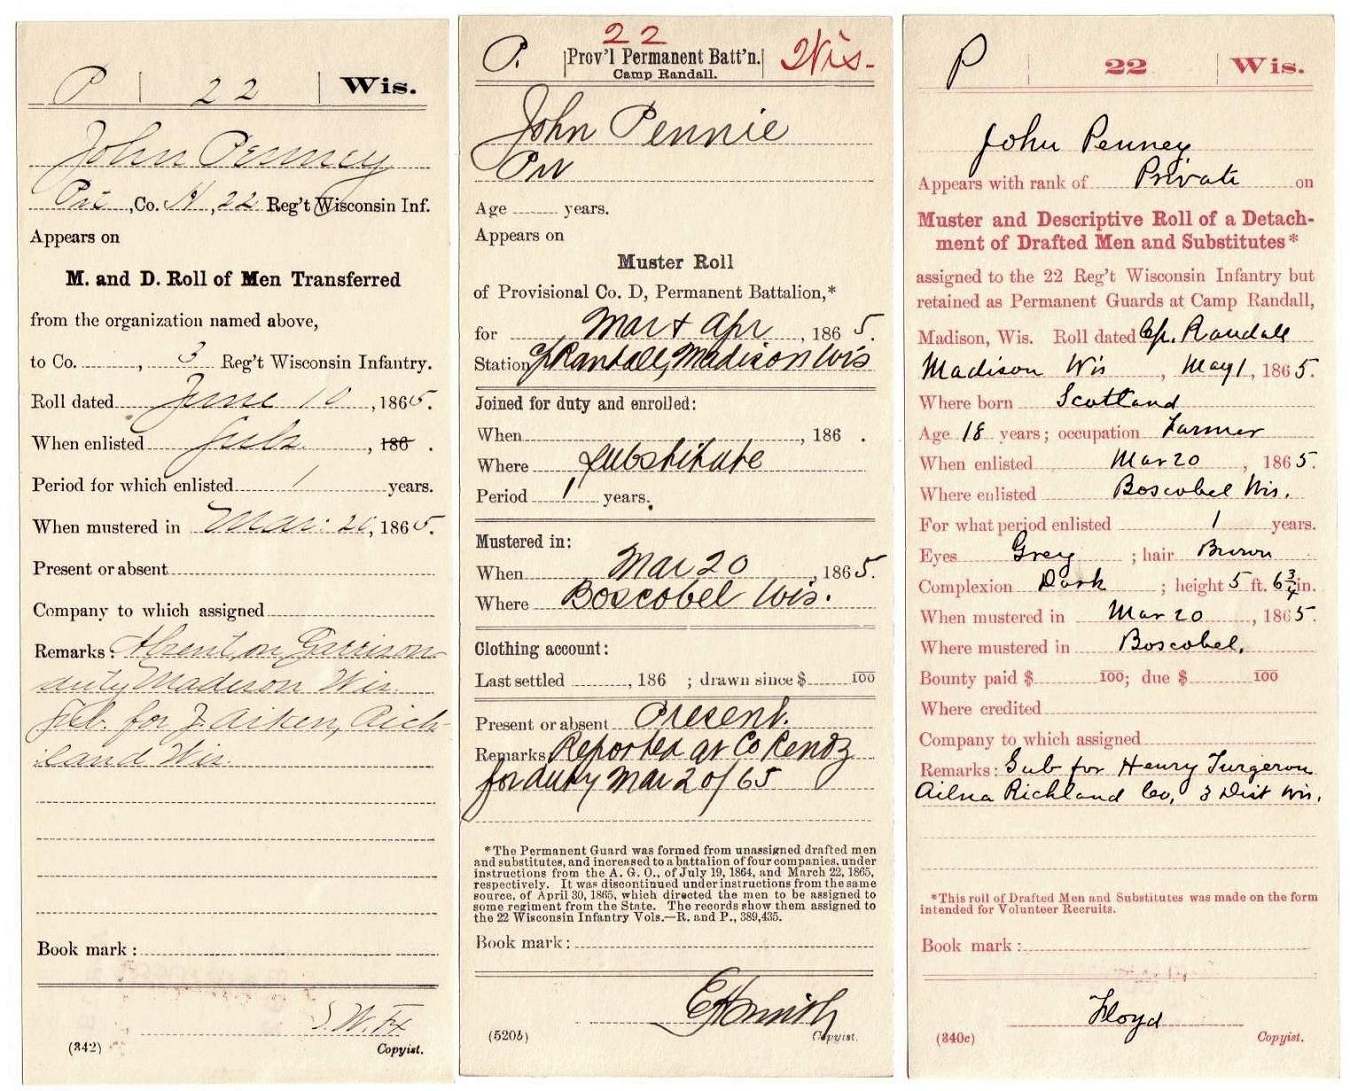 P | 22 | Wis.
John Penney
Pvt, Co. H, 22 Reg't Wisconsin Inf.
Appears on
M. and D. Roll of Men Transferred
from the organization named above,
to Co. , 3 Reg't Wisconsin Infantry.
Roll dated June 10, 1865.
When enlisted Sub. , 186 .
Period for which enlisted 1 years.
When mustered in Mar. 20, 1865.
Present or absent
Company to which assigned
Remarks: Absent, on Garrison
duty Madison Wis.
Sub. for J. Aiken, Rich-
land Wis.
Book mark:
S.W. Fx
(342) Copyist.
22
P. | Prov'l Permanent Batt'n. | Wis.
Camp Randall.
John Pennie
Pvt
Age years.
Appears on
Muster Roll
of Provisional Co. D, Permanent Battalion,*
for Mar & Apr, 1865.
Station Cp Randall, Madison Wis
Joined for duty and enrolled:
When , 186 .
Where Substitute
Period 1 years.
Mustered in:
When Mar 20 , 1865.
Where Boscobel Wis.
Clothing account:
Last settled , 186 ; drawn since $ 100
Present or absent Present.
Remarks Reported at Co Rendz
for duty Mar 20/65
*The Permanent Guard was formed from unassigned drafted men
and substitutes, and increased to a battalion of four companies, under
instructions from the A. G. O., of July 19, 1864, and March 22, 1865,
respectively. It was discontinued under instructions from the same
source, of April 30, 1865, which directed the men to be assigned to
some regiment from the State. The records show them assigned to
the 22 Wisconsin Infantry Vols.—R. and P., 389,435.
Book mark:
E H Smith
(520b) Copyist.
P | 22 | Wis.
John Penney
Appears with rank of Private on
Muster and Descriptive Roll of a Detach-
ment of Drafted Men and Substitutes*
assigned to the 22 Reg't Wisconsin Infantry but
retained as Permanent Guards at Camp Randall,
Madison, Wis. Roll dated Cp. Randall
Madison Wis , May 1, 1865.
Where born Scotland
Age 18 years; occupation Farmer
When enlisted Mar 20 , 1865.
Where enlisted Boscobel Wis.
For what period enlisted 1 years.
Eyes Grey ; hair Brown
Complexion Dark ; height 5 ft. 6 3/4 in.
When mustered in Mar 20 , 1865.
Where mustered in Boscobel.
Bounty paid $ 100; due $ 100
Where credited
Company to which assigned
Remarks: Sub for Henry Turgeron
Richland Co, 3 Dist Wis.
*This roll of Drafted Men and Substitutes was made on the form
intended for Volunteer Recruits.
Book mark:
Floyd
(340c) Copyist.